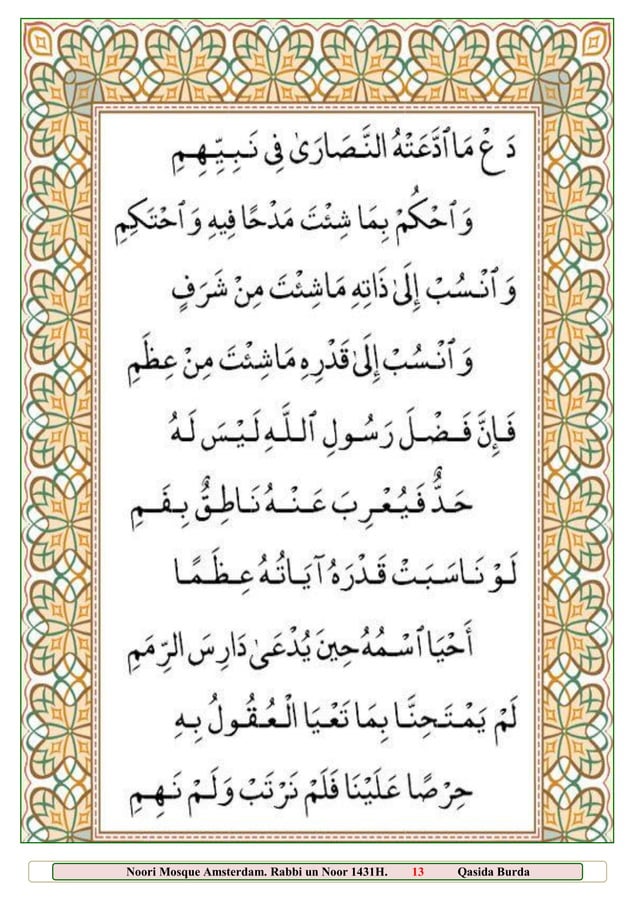 دَعْ مَا ٱدَّعَتْهُ النَّصَارَىٰ فِي نَبِيِّهِمِ
وَٱحْكُمْ بِمَا شِئْتَ مَدْحًا فِيهِ وَٱحْتَكِمِ
وَٱنْسُبْ إِلَىٰ ذَاتِهِ مَاشِئْتَ مِنْ شَرَفٍ
وَٱنْسُبْ إِلَىٰ قَدْرِهِ مَاشِئْتَ مِنْ عِظَمِ
فَإِنَّ فَضْلَ رَسُولِ ٱللَّهِ لَيْسَ لَهُ
حَدٌّ فَيُعْرِبَ عَنْهُ نَاطِقٌ بِفَمِ
لَوْ نَاسَبَتْ قَدْرَهُ آيَاتُهُ عِظَمًا
أَحْيَا ٱسْمُهُ حِينَ يُدْعَىٰ دَارِسَ الرِّمَمِ
لَمْ يَمْتَحِنَّا بِمَا تَعْيَا الْعُقُولُ بِهِ
حِرْصًا عَلَيْنَا فَلَمْ نَرْتَبْ وَلَمْ نَهِمِ
Noori Mosque Amsterdam. Rabbi un Noor 1431H. 13 Qasida Burda